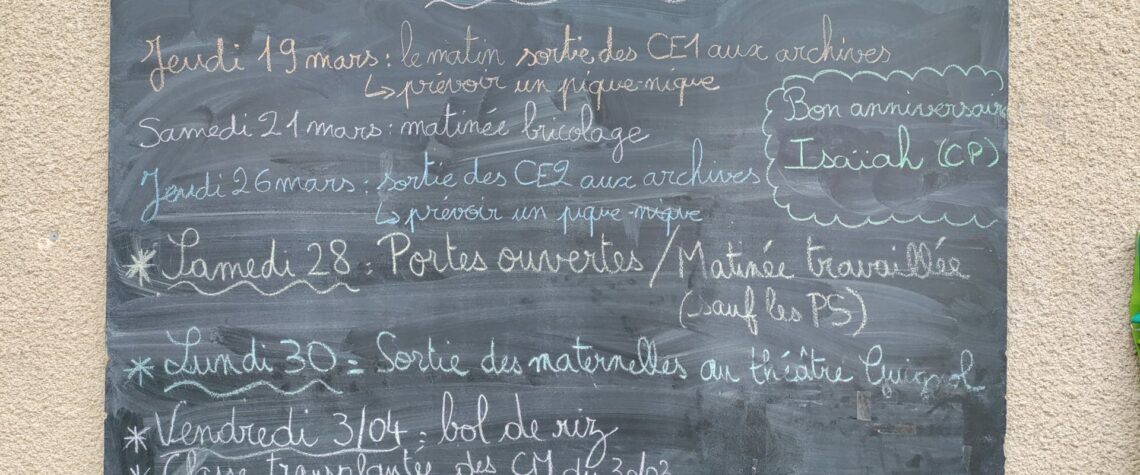 Jeudi 19 mars : le matin sortie des CE1 aux archives
↳ prévoir un pique-nique
Bon anniversaire
Isaïah (CP)
Samedi 21 mars : matinée bricolage
Jeudi 26 mars : sortie des CE2 aux archives
↳ prévoir un pique-nique
* Samedi 28 : Portes ouvertes / Matinée travaillée
(sauf les PS)
* Lundi 30 = Sortie des maternelles au théâtre Guignol
* Vendredi 3/04 : bol de riz
* Classe transplantée des CM du 30/03